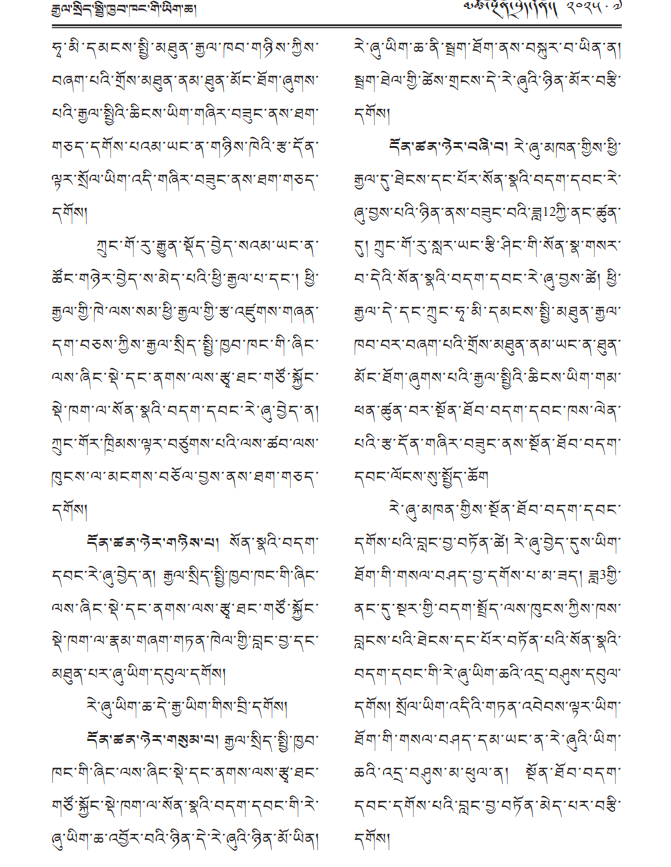 རྒྱལ་སྲིད་སྤྱི་ཁྱབ་ཁང་གི་ཡིག་ཆ།
༢༠༢༥ · ༡
ཧྭ་མི་དམངས་སྤྱི་མཐུན་རྒྱལ་ཁབ་གཉིས་ཀྱིས་
བཞག་པའི་གྲོས་མཐུན་ནམ་ཐུན་མོང་ཐོག་ཞུགས་
པའི་རྒྱལ་སྤྱིའི་ཆིངས་ཡིག་གཞིར་བཟུང་ནས་ཐག་
གཅད་དགོས་པའམ་ཡང་ན་གཉིས་ཁེའི་རྩ་དོན་
ལྟར་སྲོལ་ཡིག་འདི་གཞིར་བཟུང་ནས་ཐག་གཅད་
དགོས།
ཀྲུང་གོ་རུ་རྒྱུན་སྡོད་བྱེད་སའམ་ཡང་ན་
ཚོང་གཉེར་བྱེད་ས་མེད་པའི་ཕྱི་རྒྱལ་པ་དང་། ཕྱི་
རྒྱལ་གྱི་ཁེ་ལས་སམ་ཕྱི་རྒྱལ་གྱི་རྩ་འཛུགས་གཞན་
དག་བཅས་ཀྱིས་རྒྱལ་སྲིད་སྤྱི་ཁྱབ་ཁང་གི་ཞིང་
ལས་ཞིང་སྡེ་དང་ནགས་ལས་རྩྭ་ཐང་གཙོ་སྐྱོང་
སྡེ་ཁག་ལ་སོན་སྣའི་བདག་དབང་རེ་ཞུ་བྱེད་ན།
ཀྲུང་གོར་ཁྲིམས་ལྟར་བཙུགས་པའི་ལས་ཚབ་ལས་
ཁུངས་ལ་མངགས་བཅོལ་བྱས་ནས་ཐག་གཅད་
དགོས།
དོན་ཚན་ཉེར་གཉིས་པ། སོན་སྣའི་བདག་
དབང་རེ་ཞུ་བྱེད་ན། རྒྱལ་སྲིད་སྤྱི་ཁྱབ་ཁང་གི་ཞིང་
ལས་ཞིང་སྡེ་དང་ནགས་ལས་རྩྭ་ཐང་གཙོ་སྐྱོང་
སྡེ་ཁག་ལ་རྣམ་གཞག་གཏན་ཁེལ་གྱི་བླང་བྱ་དང་
མཐུན་པར་ཞུ་ཡིག་དབུལ་དགོས།
རེ་ཞུ་ཡིག་ཆ་དེ་རྒྱ་ཡིག་གིས་བྲི་དགོས།
དོན་ཚན་ཉེར་གསུམ་པ། རྒྱལ་སྲིད་སྤྱི་ཁྱབ་
ཁང་གི་ཞིང་ལས་ཞིང་སྡེ་དང་ནགས་ལས་རྩྭ་ཐང་
གཙོ་སྐྱོང་སྡེ་ཁག་ལ་སོན་སྣའི་བདག་དབང་གི་རེ་
ཞུ་ཡིག་ཆ་འབྱོར་བའི་ཉིན་དེ་རེ་ཞུའི་ཉིན་མོ་ཡིན།
རེ་ཞུ་ཡིག་ཆ་ནི་སྦྲག་ཐོག་ནས་བསྐུར་བ་ཡིན་ན།
སྦྲག་ཐེལ་གྱི་ཚེས་གྲངས་དེ་རེ་ཞུའི་ཉིན་མོར་བརྩི་
དགོས།
དོན་ཚན་ཉེར་བཞི་བ། རེ་ཞུ་མཁན་གྱིས་ཕྱི་
རྒྱལ་དུ་ཐེངས་དང་པོར་སོན་སྣའི་བདག་དབང་རེ་
ཞུ་བྱས་པའི་ཉིན་ནས་བཟུང་བའི་ཟླ12ཀྱི་ནང་ཚུན་
དུ། ཀྲུང་གོ་རུ་སླར་ཡང་རྩི་ཤིང་གི་སོན་སྣ་གསར་
བ་དེའི་སོན་སྣའི་བདག་དབང་རེ་ཞུ་བྱས་ཚེ། ཕྱི་
རྒྱལ་དེ་དང་ཀྲུང་ཧྭ་མི་དམངས་སྤྱི་མཐུན་རྒྱལ་
ཁབ་བར་བཞག་པའི་གྲོས་མཐུན་ནམ་ཡང་ན་ཐུན་
མོང་ཐོག་ཞུགས་པའི་རྒྱལ་སྤྱིའི་ཆིངས་ཡིག་གམ་
ཕན་ཚུན་བར་སྔོན་ཐོབ་བདག་དབང་ཁས་ལེན་
པའི་རྩ་དོན་གཞིར་བཟུང་ནས་སྔོན་ཐོབ་བདག་
དབང་ལོངས་སུ་སྤྱོད་ཆོག
རེ་ཞུ་མཁན་གྱིས་སྔོན་ཐོབ་བདག་དབང་
དགོས་པའི་བླང་བྱ་བཏོན་ཚེ། རེ་ཞུ་བྱེད་དུས་ཡིག་
ཐོག་གི་གསལ་བཤད་བྱ་དགོས་པ་མ་ཟད། ཟླ3གྱི་
ནང་དུ་སྔར་གྱི་བདག་སྤྲོད་ལས་ཁུངས་ཀྱིས་ཁས་
བླངས་པའི་ཐེངས་དང་པོར་བཏོན་པའི་སོན་སྣའི་
བདག་དབང་གི་རེ་ཞུ་ཡིག་ཆའི་འདྲ་བཤུས་དབུལ་
དགོས། སྲོལ་ཡིག་འདིའི་གཏན་འབེབས་ལྟར་ཡིག་
ཐོག་གི་གསལ་བཤད་དམ་ཡང་ན་རེ་ཞུའི་ཡིག་
ཆའི་འདྲ་བཤུས་མ་ཕུལ་ན། སྔོན་ཐོབ་བདག་
དབང་དགོས་པའི་བླང་བྱ་བཏོན་མེད་པར་བརྩི་
དགོས།